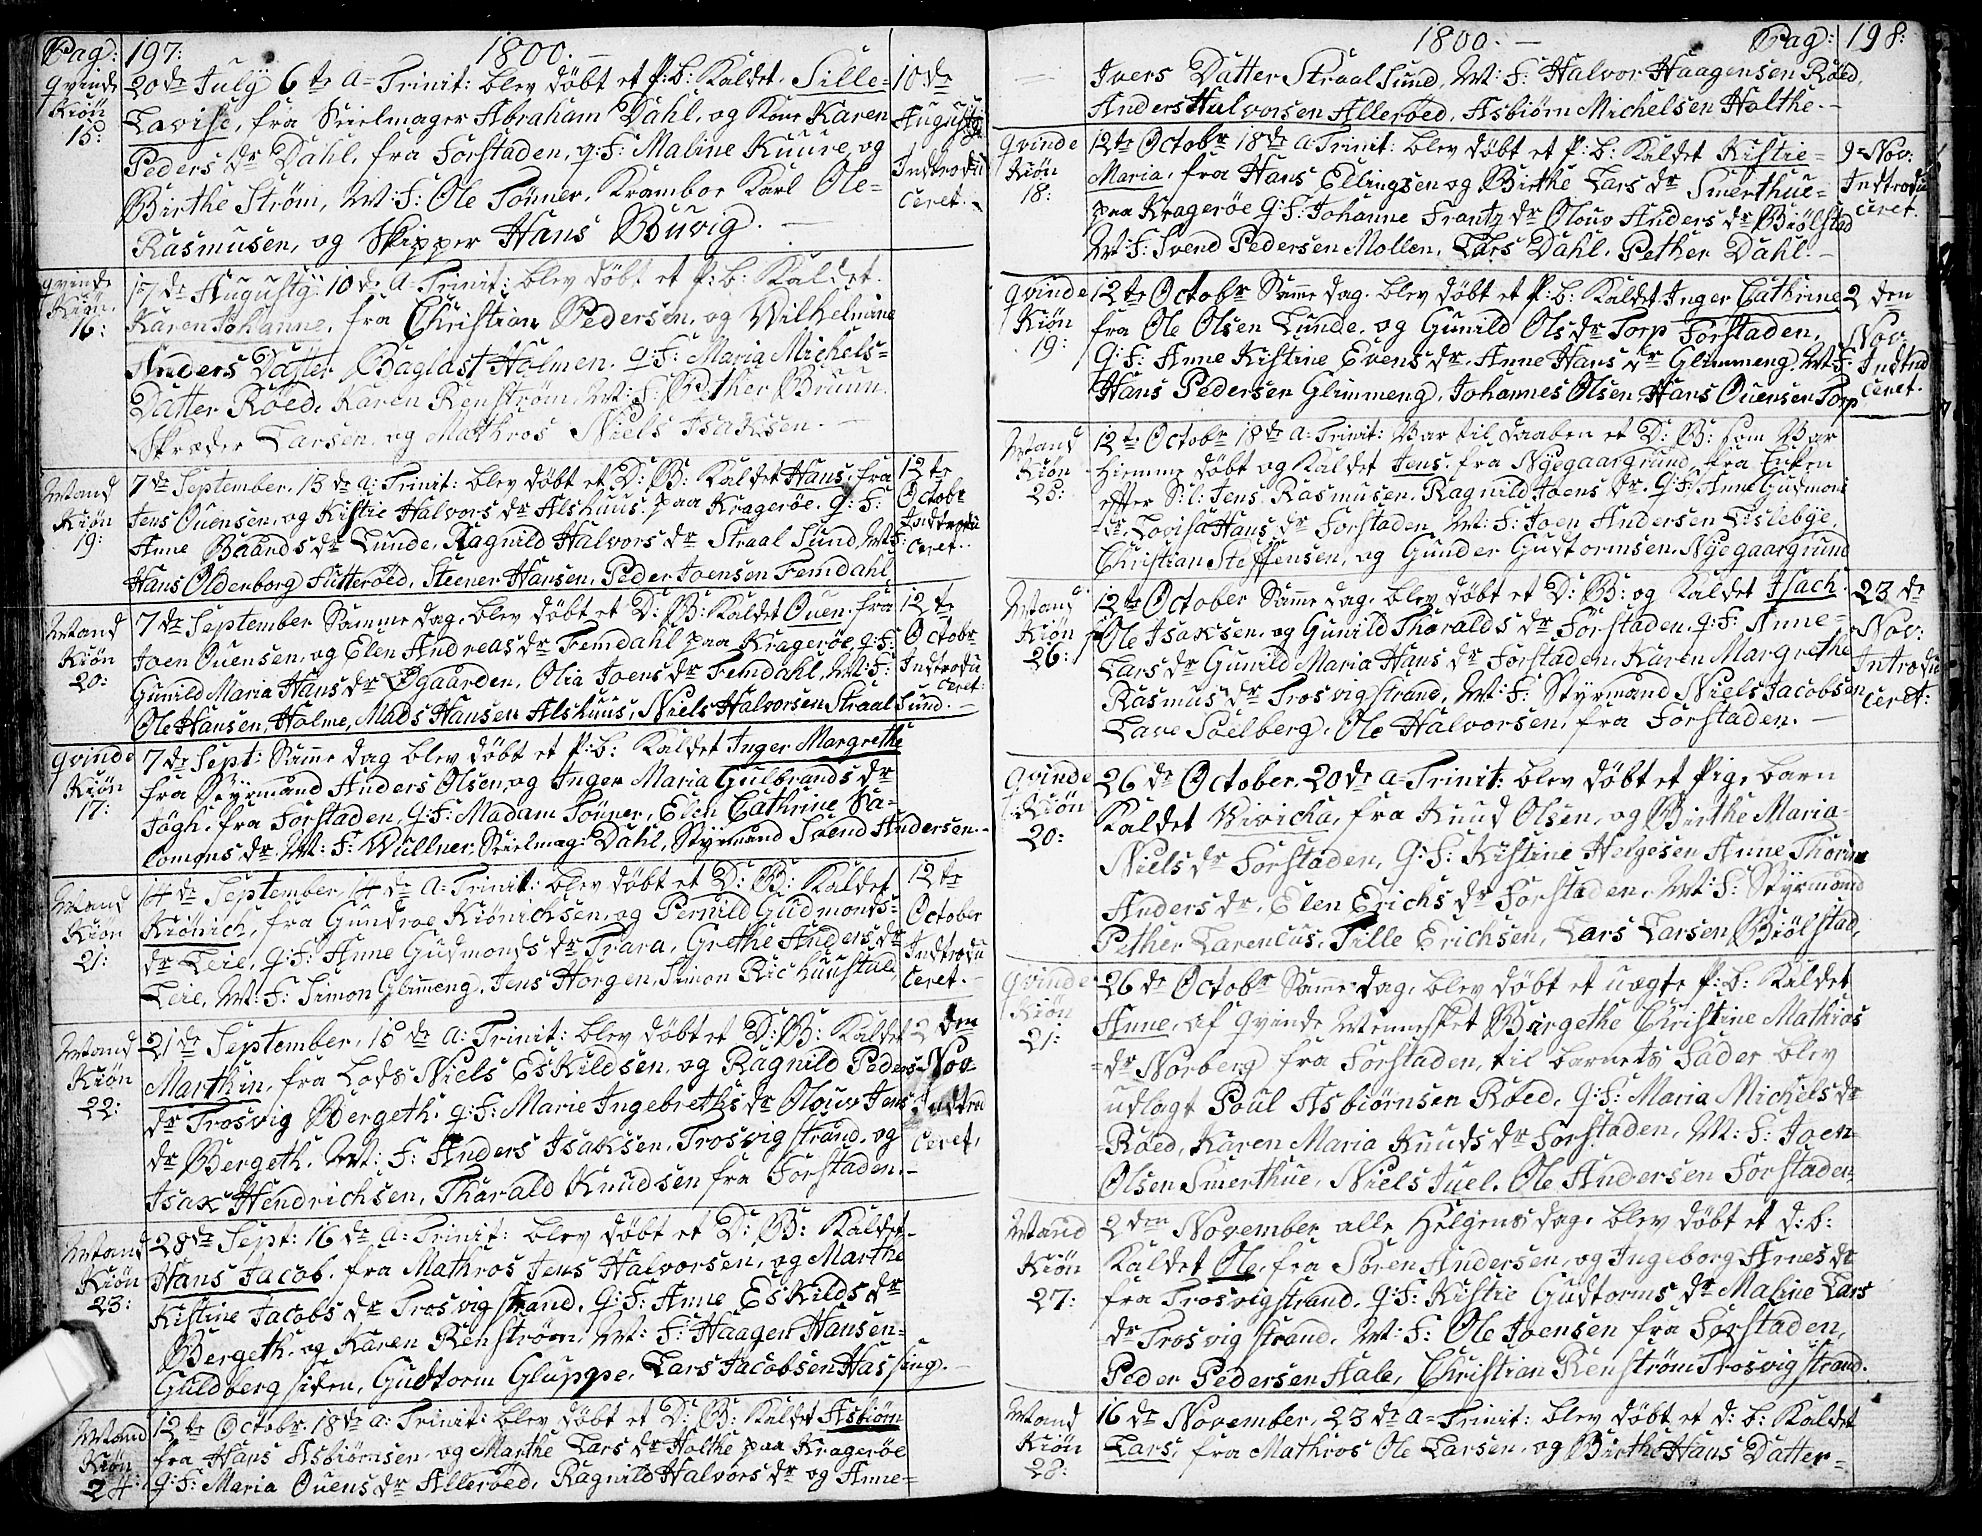 Pag: 197: 1800. —
Qvinde Kiøn 15:
20de July 6te a= Trinit: blev døbt et P: b: Kaldet Sille=
Lovise, fra Seielmager Abraham Dahl, og Kone Karen
Peders dr Dahl, fra Forstaden, q: F: Maline Kuure, og
Birthe Strøm, M: F: Ole Tønner, Krambor Karl Ole=
Rasmusen, og Skipper Hans Buvig. —
10de Augusty Indtrodu ceret.
Qvinde Kiøn 16:
17de Augusty 10de a= Trinit: blev døbt et P: b: Kaldet
Karen Johanne, fra Christian Pedersen, og Wilhelmine
Anders Datter Baglast Holmen. q: F: Maria Michels=
Datter Røed, Karen Renstrøm, M: F: Pether Bruun
Skræder Larsen, og Mathros Niels Isaksen. —
Mand Kiøn 19:
7de September, 13de a: Trinit: blev døbt et D: B: Kaldet Hans, fra
Jens Ouensen, og Kistie Halvors dr Alshuus, paa Kragerøe. q: F:
Anne Baards dr Lunde, Ragnild Halvors dr Straal Sund, M: F:
Hans Oldenborg Sutterøed, Steener Hansen, Peder Joensen Femdahl
12te Octobr Indtrodu ceret.
Mand Kiøn 20:
7de September Samme dag, blev døbt et D: B: Kaldet Ouen, fra
Joen Ouensen, og Elen Andreas dr Femdahl paa Kragerøe, q: F:
Gunild Maria Hans dr Øgaarden, Olia Joens dr Femdahl, M: F:
Ole Hansen, Holme, Mads Hansen Alshuus, Niels Halvorsen Straal Sund. —
12te Octobr Indtrodu ceret.
Qvinde Kiøn 17:
7de Sept: Samme dag blev døbt et P: b: Kaldet Inger Margrethe
fra Styrmand Anders Olsen, og Inger Maria Gulbrands dr
Fogh, fra Forstaden, Q: F: Madam Tønner, Elen Cathrine Sa=
lomons dr. M: F: Wullner, Seielmag: Dahl, Styrmand Svend Andersen. —
Mand Kiøn 21:
14de September, 14de a= Trinit: blev døbt et D: B: Kaldet
Kiønich, fra Gundroe Kiønichsen, og Pernild Gudmonds=
dr Leie, q: F: Anne Gudmonds dr Trara, Grethe Anders dr
Leie, M: F: Simon Glimmeng, Jens Horgen, Simon Ric huustad,
12te October Indtrodu ceret. —
Mand Kiøn 22:
21de September, 15de a: Trinit: blev døbt et D: B: Kaldet
Marthin, fra Lods Niels Eskildsen, og Ragnild Peders
dr Trosvig Bergeth. q: F: Marie Ingebreths dr Olouv Jens
dr Bergeth. M: F: Anders Isaksen, Trosvig strand, og
Isak Hendrichsen, Tharald Knudsen fra Forstaden. —
2den Nov Indtrod ceret,
Mand Kiøn 23:
28de Sept: 16de a= Trinit: blev døbt et D: B: Kaldet
Hans Jacob, fra Mathros Jens Halvorsen, og Marthe
Kistine Jacobs dr Trosvig strand, Q: F: Anne Eskilds dr
Bergeth, og Karen Renstrøm, M: F: Haagen Hansen=
Guldberg siden, Gudtorm Gluppe, Lars Jacobsen Hassing. —
Mand Kiøn 24:
12te Octobr. 18de a: Trinit: blev døbt et D: B: Kaldet Asbiørn
fra Hans Asbiørnsen, og Marthe Lars dr Holthe paa Kragerøe
q: F: Maria Ouens dr Allerøed, Ragnild Halvors dr og Anne=
1800. — Pag: 198:
Joers Datter Straal Sund, M: F: Halvor Haagensen Røed,
Anders Halvorsen Allerøed, Asbiørn Michelsen Holthe. —
Qvinde Kiøn 18:
12te Octobr 18de a= Trinit: blev døbt et P: b: Kaldet Kistie=
Maria, fra Hans Edlingsen og Birthe Lars dr Smerthue=
paa Kragerøe q: F: Johanne Frantz dr Olouv Anders dr Biølstad
M: F: Svend Pedersen Mollen, Lars Dahl, Pether Dahl. —
9= Nov: Indtrodu ceret.
Qvinde Kiøn 19:
12te Octobr Samme dag, blev døbt et P: b: Kaldet Inger Cathrine
fra Ole Olsen Lunde, og Gunild Ols dr Torp Forstaden,
q: F: Anne Kistine Evens dr. Anne Hans dr Glimmeng, M: F:
Hans Pedersen Glimmeng, Johannes Olsen, Hans Ouensen Torp
2den Nov. Indtrod ceret.
Mand Kiøn 25:
12te Octobr 18de a= Trinit: Var til Daaben et D: B: som Var
hiemme døbt og Kaldet Jens, fra Nyegaargrund, fra Enken
effter S:l: Jens Rasmusen, Ragnild Joens dr. q: F: Anne Gudmons
dr, Lovisa Hans dr Forstaden M: F: Joen Andersen Lislebye,
Christian Steffensen, og Gunder Gudtormsen, Nyegaargrund
Mand Kiøn 26:
12te October Samme dag, blev døbt et D: B: og Kaldet Isach
Ole Isaksen, og Gunild Tharalds dr Forstaden, q: F: Anne=
Lars dr Gunild Maria Hans dr Forstaden, Karen Margrethe
Rasmus dr Trosvig strand, M: F: Styrmand Niels Jacobsen
Lave Soelberg, Ole Halvorsen, fra Forstaden. —
23de Nov: Introdu ceret:
Qvinde Kiøn 20:
26de October, 20de a= Trinit: blev døbt et Pige barn
Kaldet Wivicha, fra Knud Olsen, og Birthe Maria=
Niels dr Forstaden, Q: F: Kistine Helgesen Anne Thorine
Anders dr, Elen Erichs dr Forstaden, M: F: Styrmand
Pether Larentus, Tille Erichsen, Lars Larsen, Biølstad,
Qvinde Kiøn 21:
26de Octobr Samme dag, blev døbt et uægte P: b: Kaldet
Anne, af Qvinde Mennesket Birgethe Christine Mathias
= dr Norberg fra Forstaden, til barnets Fader blev
udlagt Poul Asbiørnsen Røed, q: F: Maria Michels dr
Røed, Karen Maria Knuds dr Forstaden, M: F: Joen=
Olsen Smerthue, Niels Juel, Ole Andersen Forstaden.
Mand Kiøn 27:
2den November, alle Helgens dag, blev døbt et d: b:
Kaldet Ole, fra Søren Andersen, og Ingeborg Arnes dr
fra Trosvigstrand, q: F: Kistie Gudtorms dr Maline Lars
dr Trosvig strand, M: F: Ole Joensen fra Forstaden,
Peder Pedersen Hale, Christian Renstrøm Trosvig strand.
Mand Kiøn 28:
16de November, 23de a= Trinit: blev døbt et d: b: Kaldet
Lars, fra Mathros Ole Larsen, og Birthe Hans Datter=